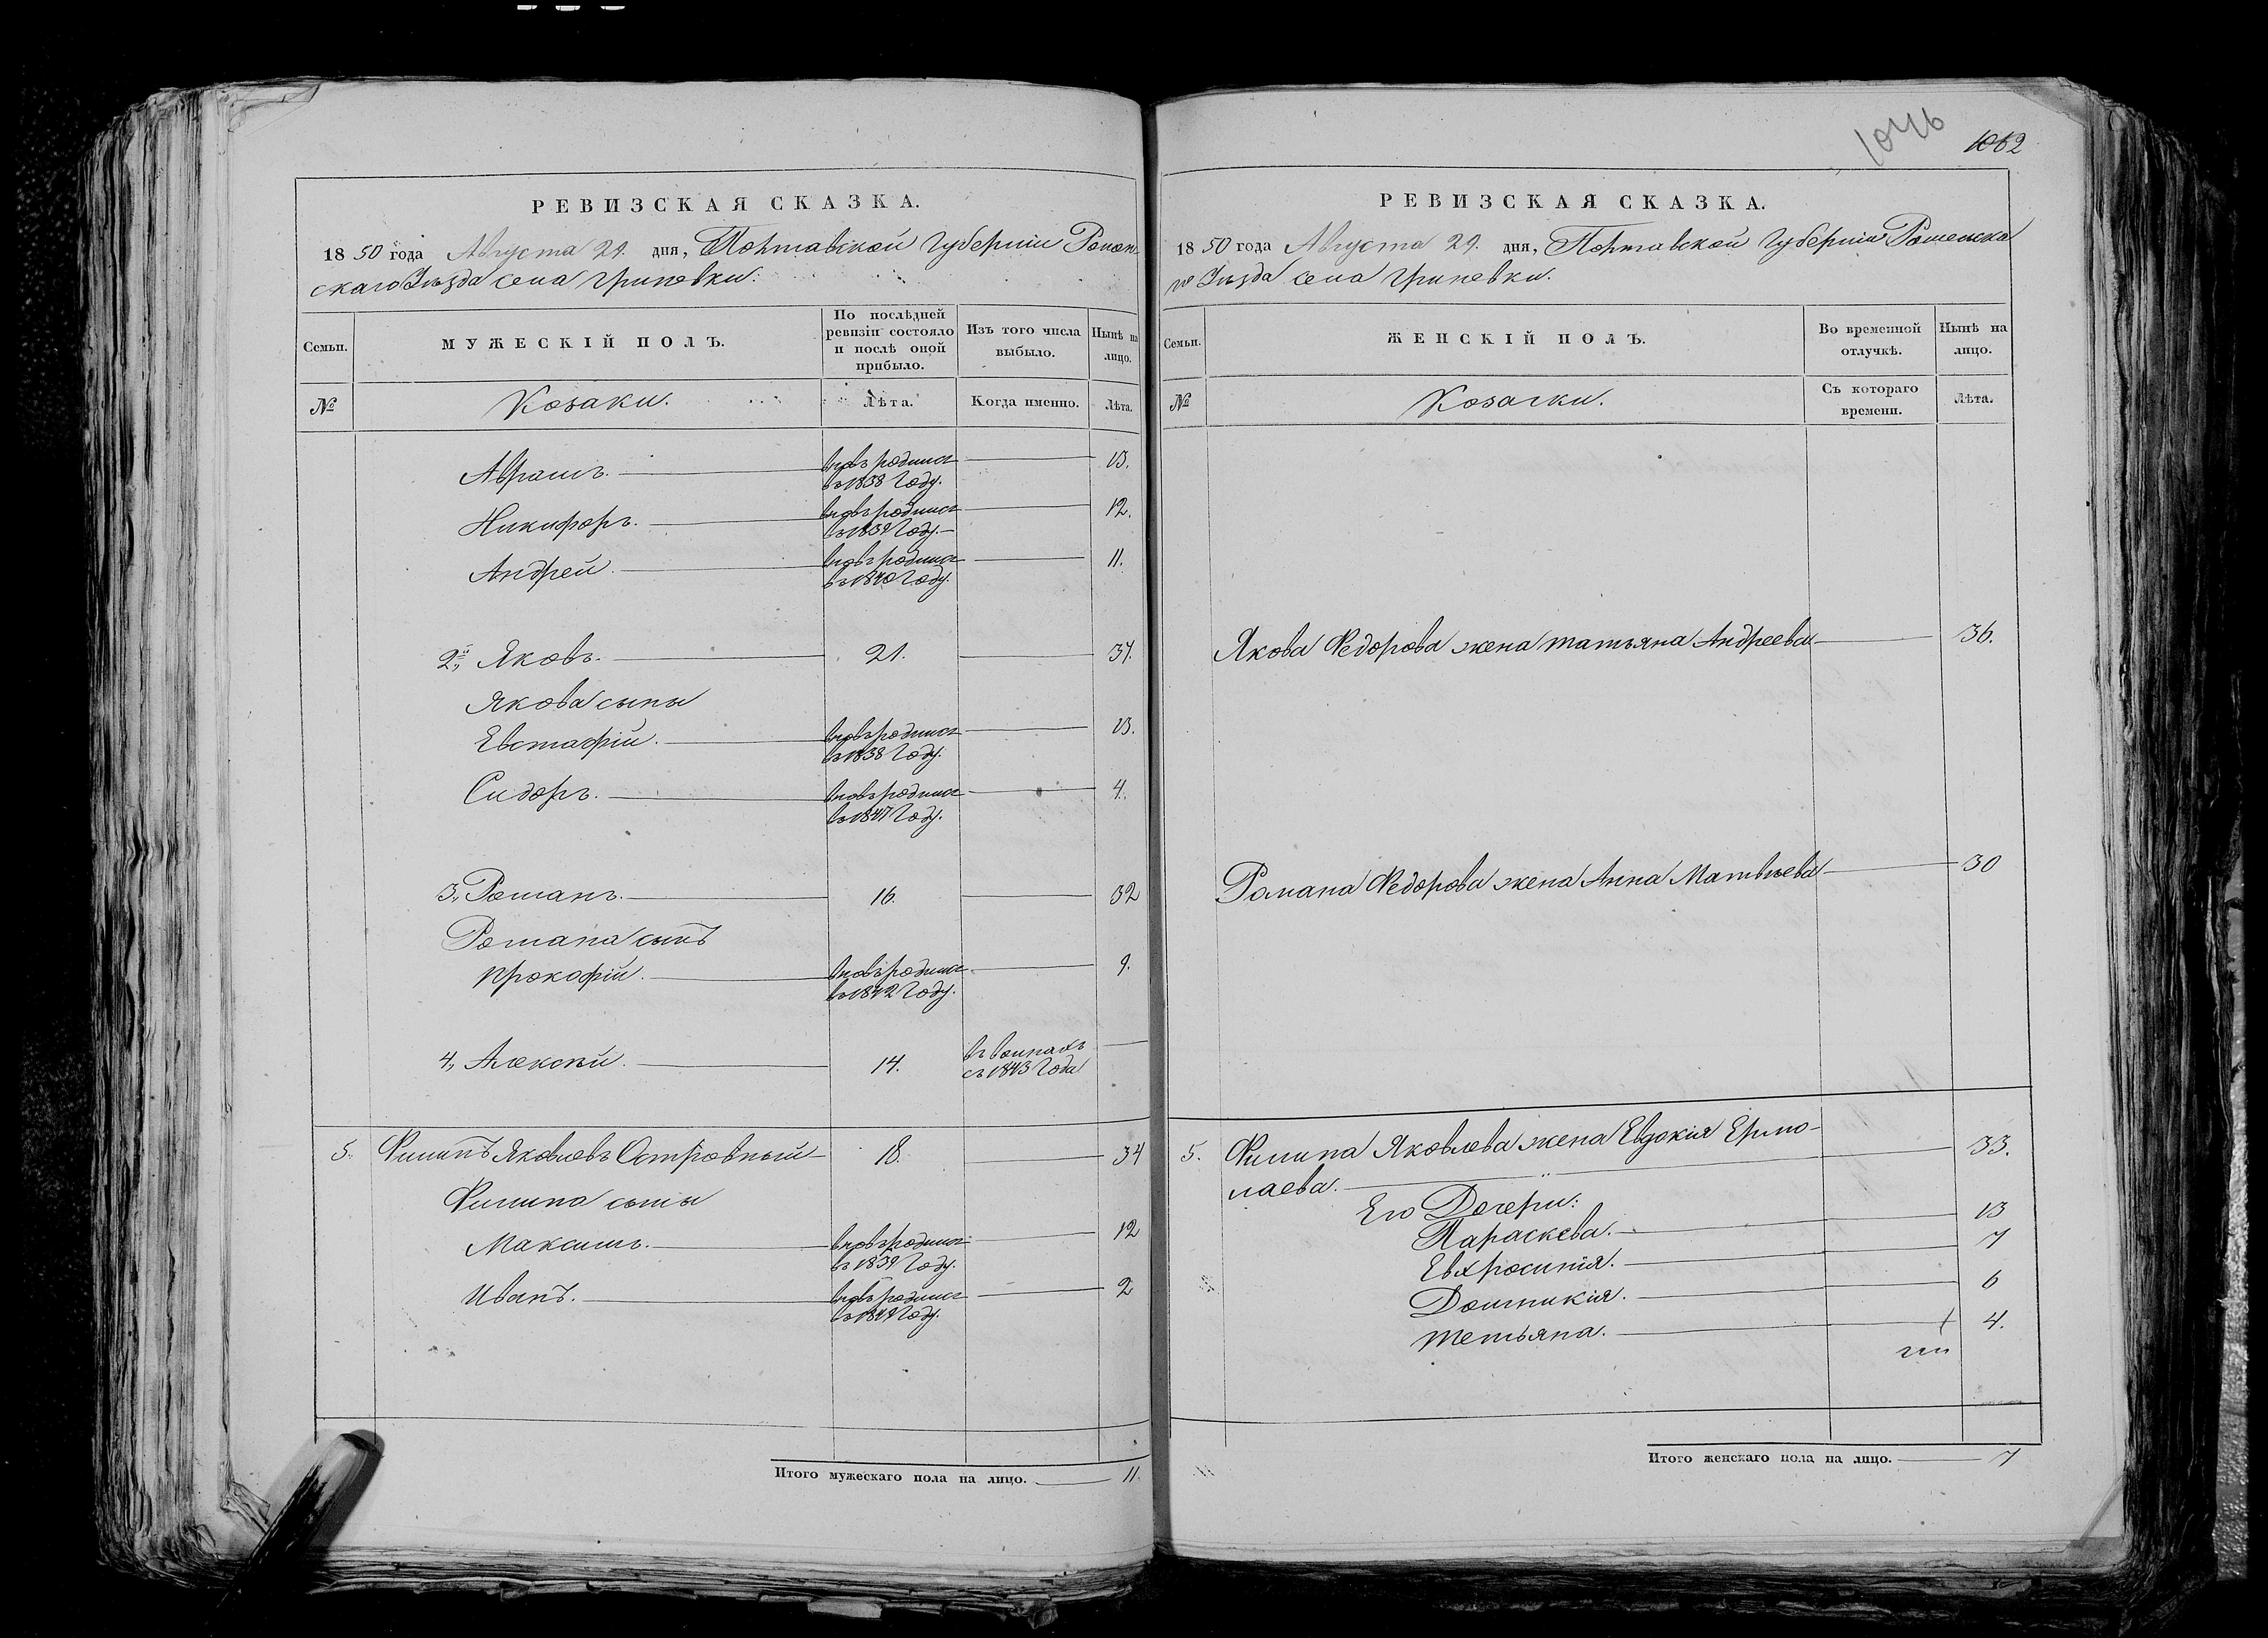 1046
1062
РЕВИЗСКАЯ СКАЗКА.
1850 года Августа 29. дня, Полтавской Губернiи Ромен-
скаго Уѣзда села Гриневки.
Семьи.
МУЖЕСКIЙ ПОЛЪ.
По послѣдней
ревизiи состояло
и послѣ оной
прибыло.
Изъ того числа
выбыло.
Нынѣ на
лицо.
№
Козаки.
Лѣта.
Когда именно.
Лѣта.
Аврамъ. вновь родился 13.
въ 1838 Году.
Никифоръ. вновь родился 12.
въ 1839 Году.
Андрей. вновь родился 11.
въ 1840 Году.
2й, Яковъ. 21. 37.
Якова сыны
Евстафiй. вновь родился 13.
въ 1838 Году.
Сидоръ. вновь родился 4.
въ 1847 Году.
3, Романъ. 16. 32
Романа сынъ
Прокофiй. вновь родился 9.
въ 1842 Году.
4, Алексѣй. 14. въ воинахъ
съ 1843 Года
5. Филипъ Яковлевъ Островный 18. 34
Филипа сыны
Максимъ. вновь родился 12
въ 1839 Году.
Иванъ. вновь родился 2
въ 1849 Году.
Итого мужескаго пола на лицо. 11.
РЕВИЗСКАЯ СКАЗКА.
1850 года Августа 29. дня, Полтавской Губернiи Роменска
го Уѣзда села Гриневки.
Семьи.
ЖЕНСКIЙ ПОЛЪ.
Во временной
отлучкѣ.
Нынѣ на
лицо.
№
Козачки.
Съ котораго
времени.
Лѣта.
Якова Федорова жена Татьяна Андреева 36.
Романа Федорова жена Анна Матвѣева 30
5. Филипа Яковлева жена Евдокiя Ермо- 33.
лаева.
Его Дочери:
Параскева. 13
Евхросинiя. 7
Домникiя. 6
Тетьяна. 4.
Итого женскаго пола на лицо. 7